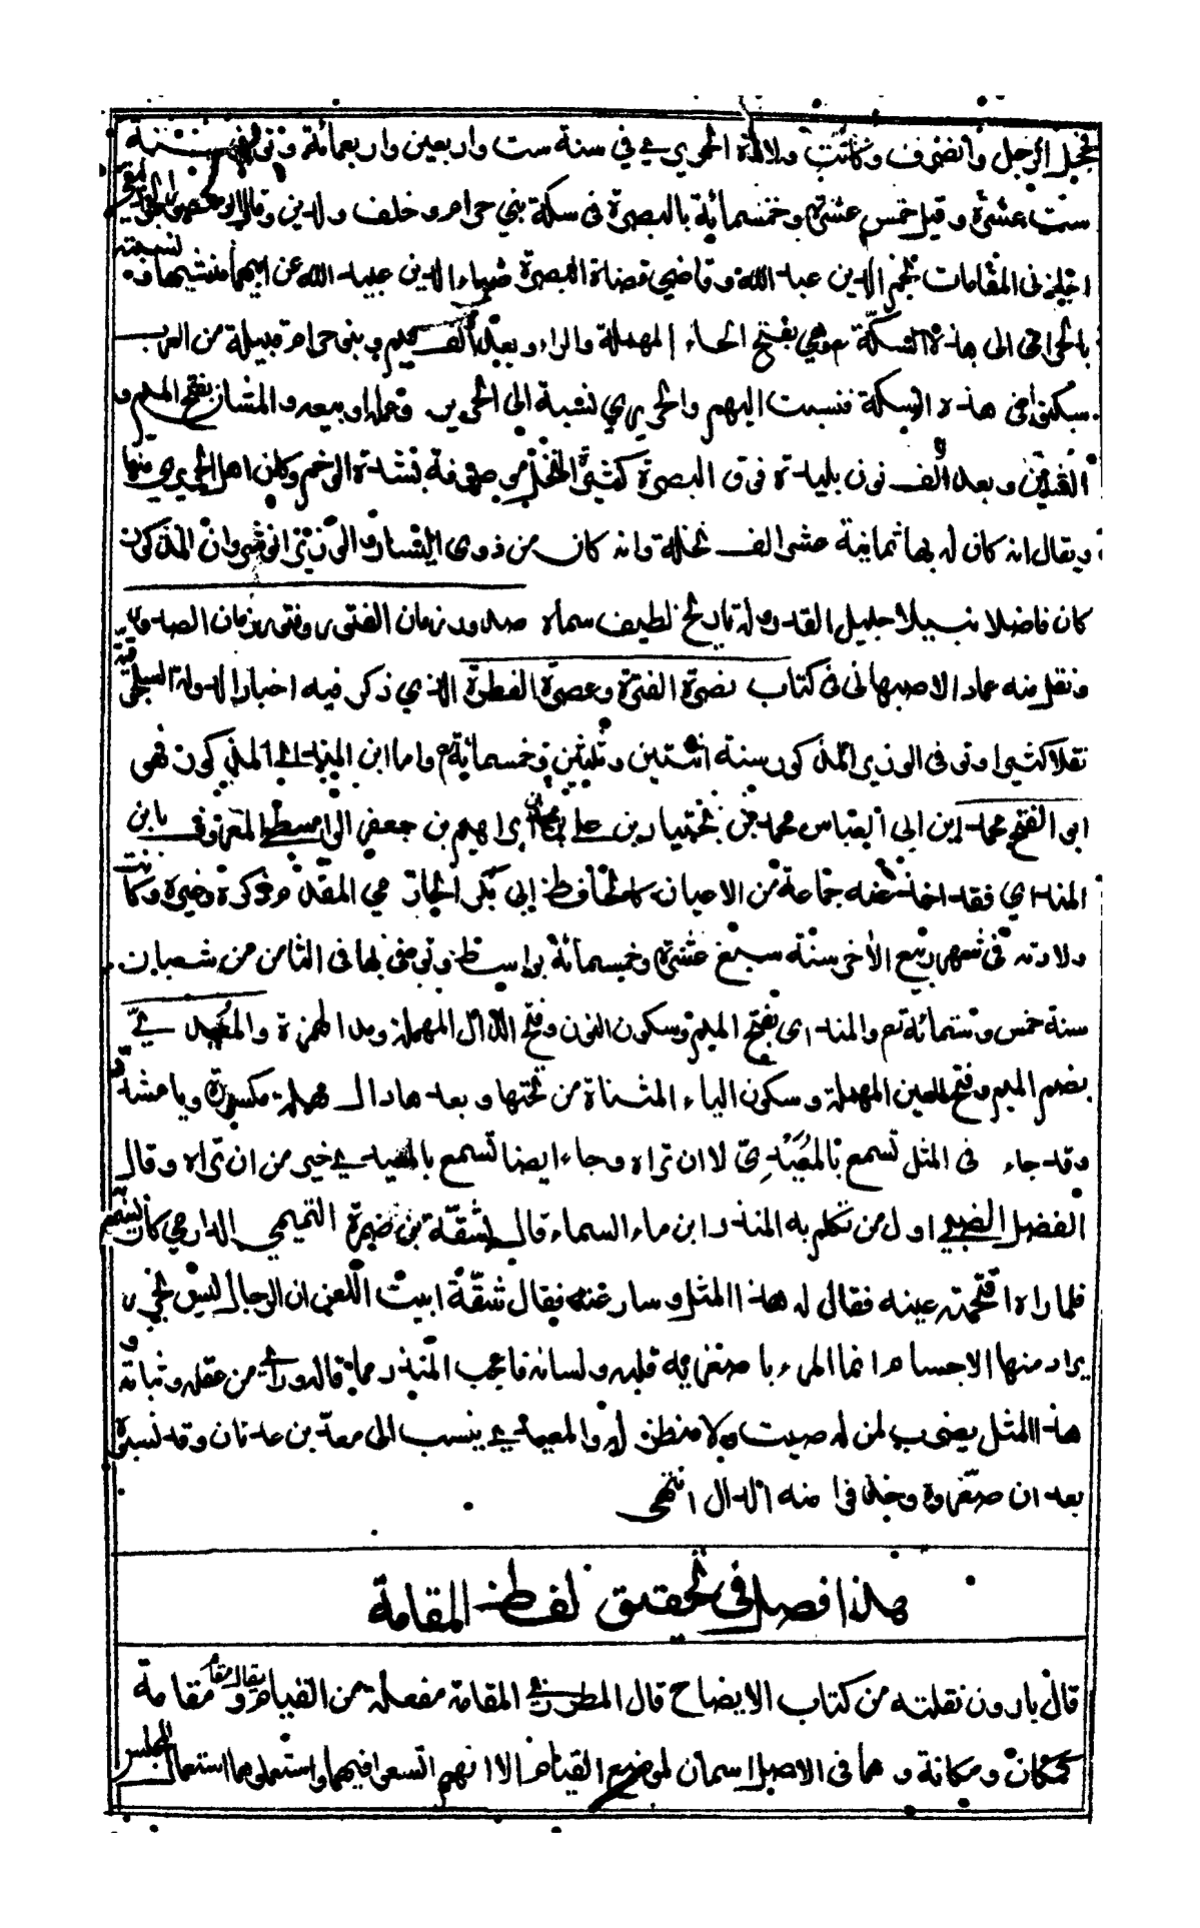 فخجل الرجل وانصرف وكانت ولادة الحريري في سنة ست واربعين واربعمائة وتوفي سنة
ست عشرة وقيل خمس عشرة وخمسمائة بالبصرة في سكة بني حرام وخلف ولدين وقال ابو منصور الجواليقي
اجازني المقامات نجم الدين عبد الله وقاضي قضاة البصرة ضياء الدين عبيد الله عن ابيهما منشيها ونسبته
بالحرامي الى هذه السكة وهي بفتح الحاء المهملة والراء وبعد الالف ميم وبنو حرام قبيلة من العرب
سكنوا في هذه السكة فنسبت اليهم والحريري نسبة الى الحرير وعمله او بيعه والمشان بفتح الميم و
الشين وبعد الف نون بليدة فوق البصرة كثيرة النخل موصوفة بشدة الوخم وكان اهل الحريري منها
ويقال انه كان له بها ثمانية عشر الف نخلة وانه كان من ذوي اليسار والوزير انوشروان المذكور
كان فاضلا نبيلا جليل القدر وله تاريخ لطيف سماه صدور زمان الفتور وفتور زمان الصدور
ونقل منه عماد الاصبهاني في كتاب نصرة الفترة وعصرة الفطرة الذي ذكر فيه اخبار الدولة السلجوقية
نقلا كثيرا وتوفي الوزير المذكور سنة اثنتين وثلثين وخمسمائة واما ابن المندائي المذكور فهو
ابو الفتح محمد بن ابي العباس محمد بن بختيار بن علي بن محمد بن ابراهيم بن جعفر الواسطي المعروف بابن
المنداي فقد اخذ عنه جماعة من الاعيان كالحافظ ابي بكر الحازمي المقدم ذكره وغيره وكانت
ولادته في شهر ربيع الاخر سنة سبع عشرة وخمسمائة بواسط وتوفي بها في الثامن من شعبان
سنة خمس وستمائة والمنداي بفتح الميم وسكون النون وفتح الدال المهملة ومد الهمزة والمعيدي
بضم الميم وفتح العين المهملة وسكون الياء المثناة من تحتها وبعدها دال مهملة مكسورة وياء مشددة
وقد جاء في المثل تسمع بالمعيدي لا ان تراه وجاء ايضا تسمع بالمعيدي خير من ان تراه وقال
الفضل الضبي اول من تكلم به المنذر ابن ماء السماء قال لشقة بن ضمرة التميمي الدارمي كان يسمع
فلما راه اقتحمته عينه فقال له هذا المثل وسار عنه فقال شقة ابيت اللعن ان الرجال ليس بجزر
يراد منها الاجسام انما المرء باصغريه قلبه ولسانه فاعجب المنذر مما قاله وراى من عقله وثباته و
هذا المثل يضرب لمن له صيت ولا منظر له والمعيدي ينسب الى معد بن عدنان وقد نسبوه
بعد ان صغروه وخففوا منه الدال انتهى
هذا فصل في تحقيق لفظ المقامة
قال بارون نقلته من كتاب الايضاح قال المطرزي المقامة مفعلة من القيام ويقال مقام مقامة
كمكان ومكانة وهما في الاصل اسمان لموضع القيام الا انهم اتسعوا فيهما واستعملوهما استعمال المجلس